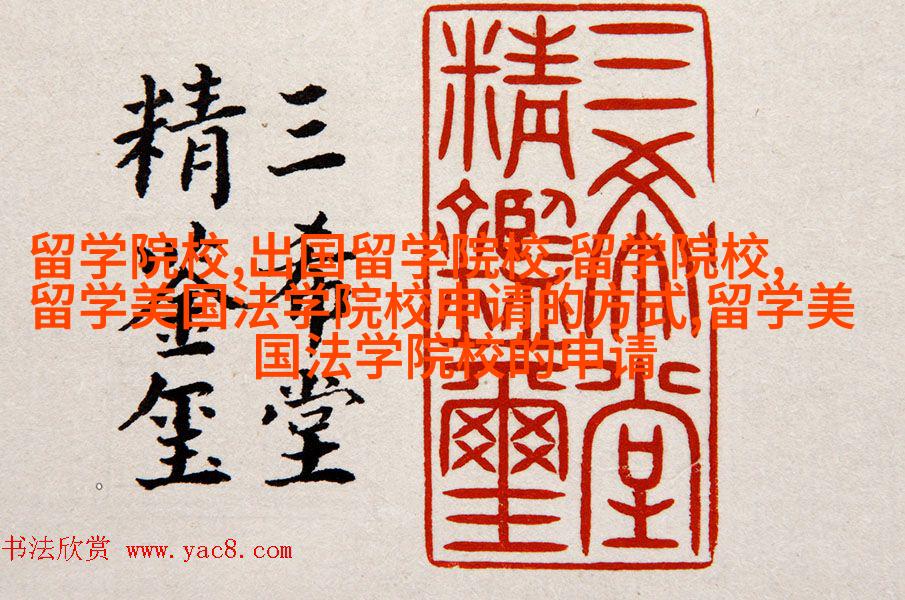 三希堂
精鉴玺
三希堂
精鑑璽
留学院校,出国留学院校,留学院校,
留学美国法学院校申请的方式,留学美
国法学院校的申请
书法欣赏 www.yac8.com